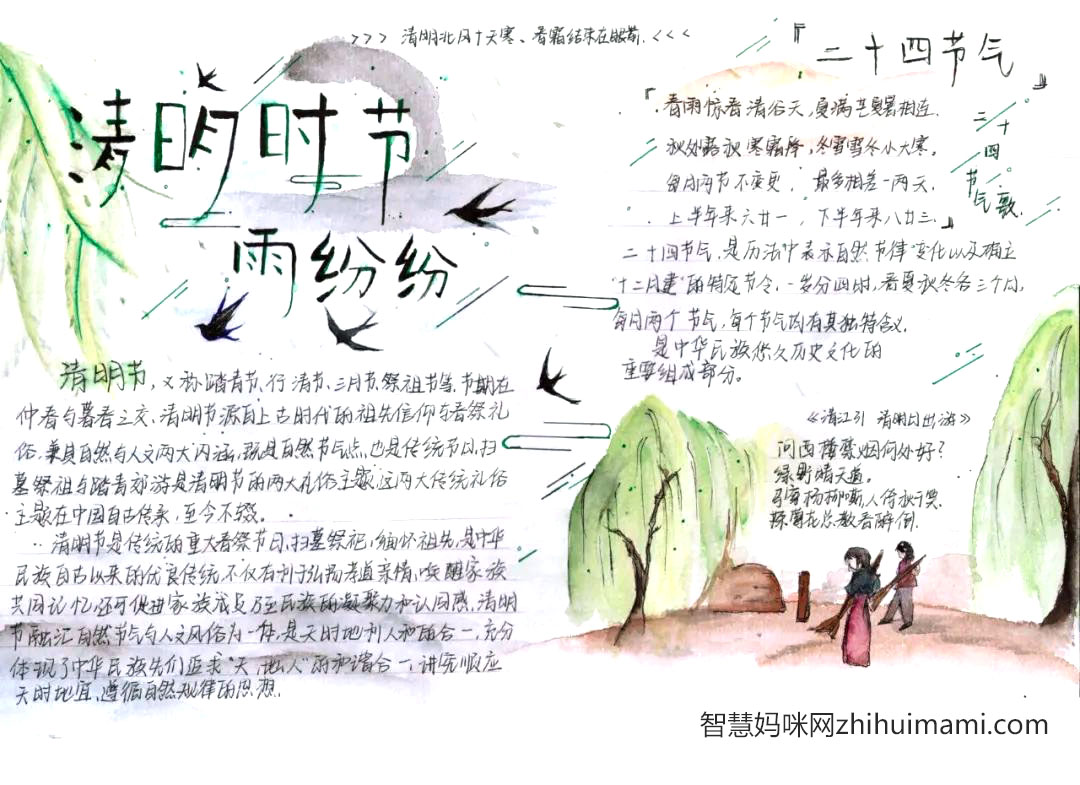 >>> 清明北风十天寒、春霜结束在眼前.<<<
清明时节
雨纷纷
『二十四节气』
『春雨惊春清谷天,夏满芒夏暑相连.
秋处露秋寒霜降,冬雪雪冬小大寒。
每月两节不变更,最多相差一两天.
上半年来六廿一,下半年来八廿三.』
二十四节气歌.
二十四节气,是历法中表示自然节律变化以及确立
"十二月建"的特定节令,一岁分四时,春夏秋冬各三个月,
每月两个节气,每个节气均有其独特含义.
是中华民族悠久历史文化的
重要组成部分。
清明节,又称踏青节、行清节、三月节、祭祖节等、节期在
仲春与暮春之交、清明节源自上古时代的祖先信仰与春祭礼
俗,兼具自然与人文两大内涵,既是自然节气点,也是传统节日,扫
墓祭祖与踏青郊游是清明节的两大礼俗主题,这两大传统礼俗
主题在中国自古传承,至今不辍。
清明节是传统的重大春祭节日,扫墓祭祀、缅怀祖先,是中华
民族自古以来的优良传统,不仅有利于弘扬孝道亲情、唤醒家族
共同记忆,还可促进家族成员乃至民族的凝聚力和认同感,清明
节融汇自然节气与人文风俗为一体,是天时地利人和的合一,充分
体现了中华民族先们追求"天、地、人"的和谐合一,讲究顺应
天时地宜、遵循自然规律的思想.
《清江引 清明日出游》
问西楼禁烟何处好?
绿野晴天道。
马穿杨柳嘶,人倚秋千笑,
探莺花总教春醉倒.
智慧妈咪网zhihuimami.com